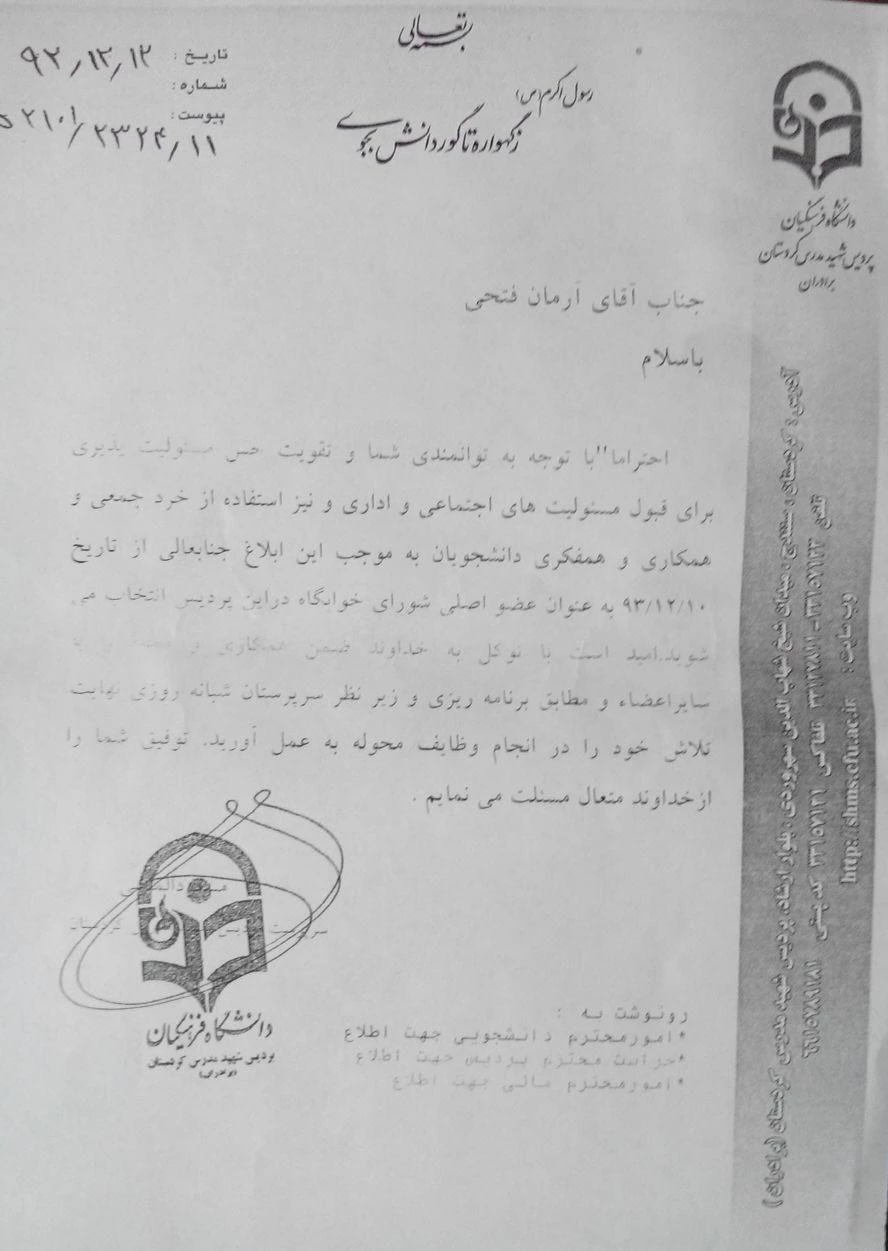 بسمه تعالی
رسول اکرم (س)
زگهواره تا گور دانش بجوی
تاریخ : ۹۲/۱۲/۱۲
شماره :
پیوست :
۵۲۱۰۱/۲۳۲۴/۱۱
دانشگاه فرهنگیان
پردیس شهید مدرس کردستان
برادران
جناب آقای آرمان فتحی
باسلام
احتراما" با توجه به توانمندی شما و تقویت حس مسئولیت پذیری
برای قبول مسئولیت های اجتماعی و اداری و نیز استفاده از خرد جمعی و
همکاری و همفکری دانشجویان به موجب این ابلاغ جنابعالی از تاریخ
۹۳/۱۲/۱۰ به عنوان عضو اصلی شورای خوابگاه دراین پردیس انتخاب می
شوید.امید است با توکل به خداوند ضمن همکاری و
سایراعضاء و مطابق برنامه ریزی و زیر نظر سرپرستان شبانه روزی نهایت
تلاش خود را در انجام وظایف محوله به عمل آورید. توفیق شما را
ازخداوند متعال مسئلت می نمایم .
سرپرست کردستان
دانشگاه فرهنگیان
پردیس شهید مدرس کردستان
(برادران)
رونوشت به :
*امورمحترم دانشجویی جهت اطلاع
*حراست محترم پردیس جهت اطلاع
*امورمحترم مالی جهت اطلاع
آدرس : کردستان ، سنندج ، میدان شیخ شهاب الدین سهروردی ، بلوار ارشاد، پردیس شهید مدرس کردستان (برادران)
تلفن
فاکس
کد پستی
وب سایت : http://shms.cfu.ac.ir